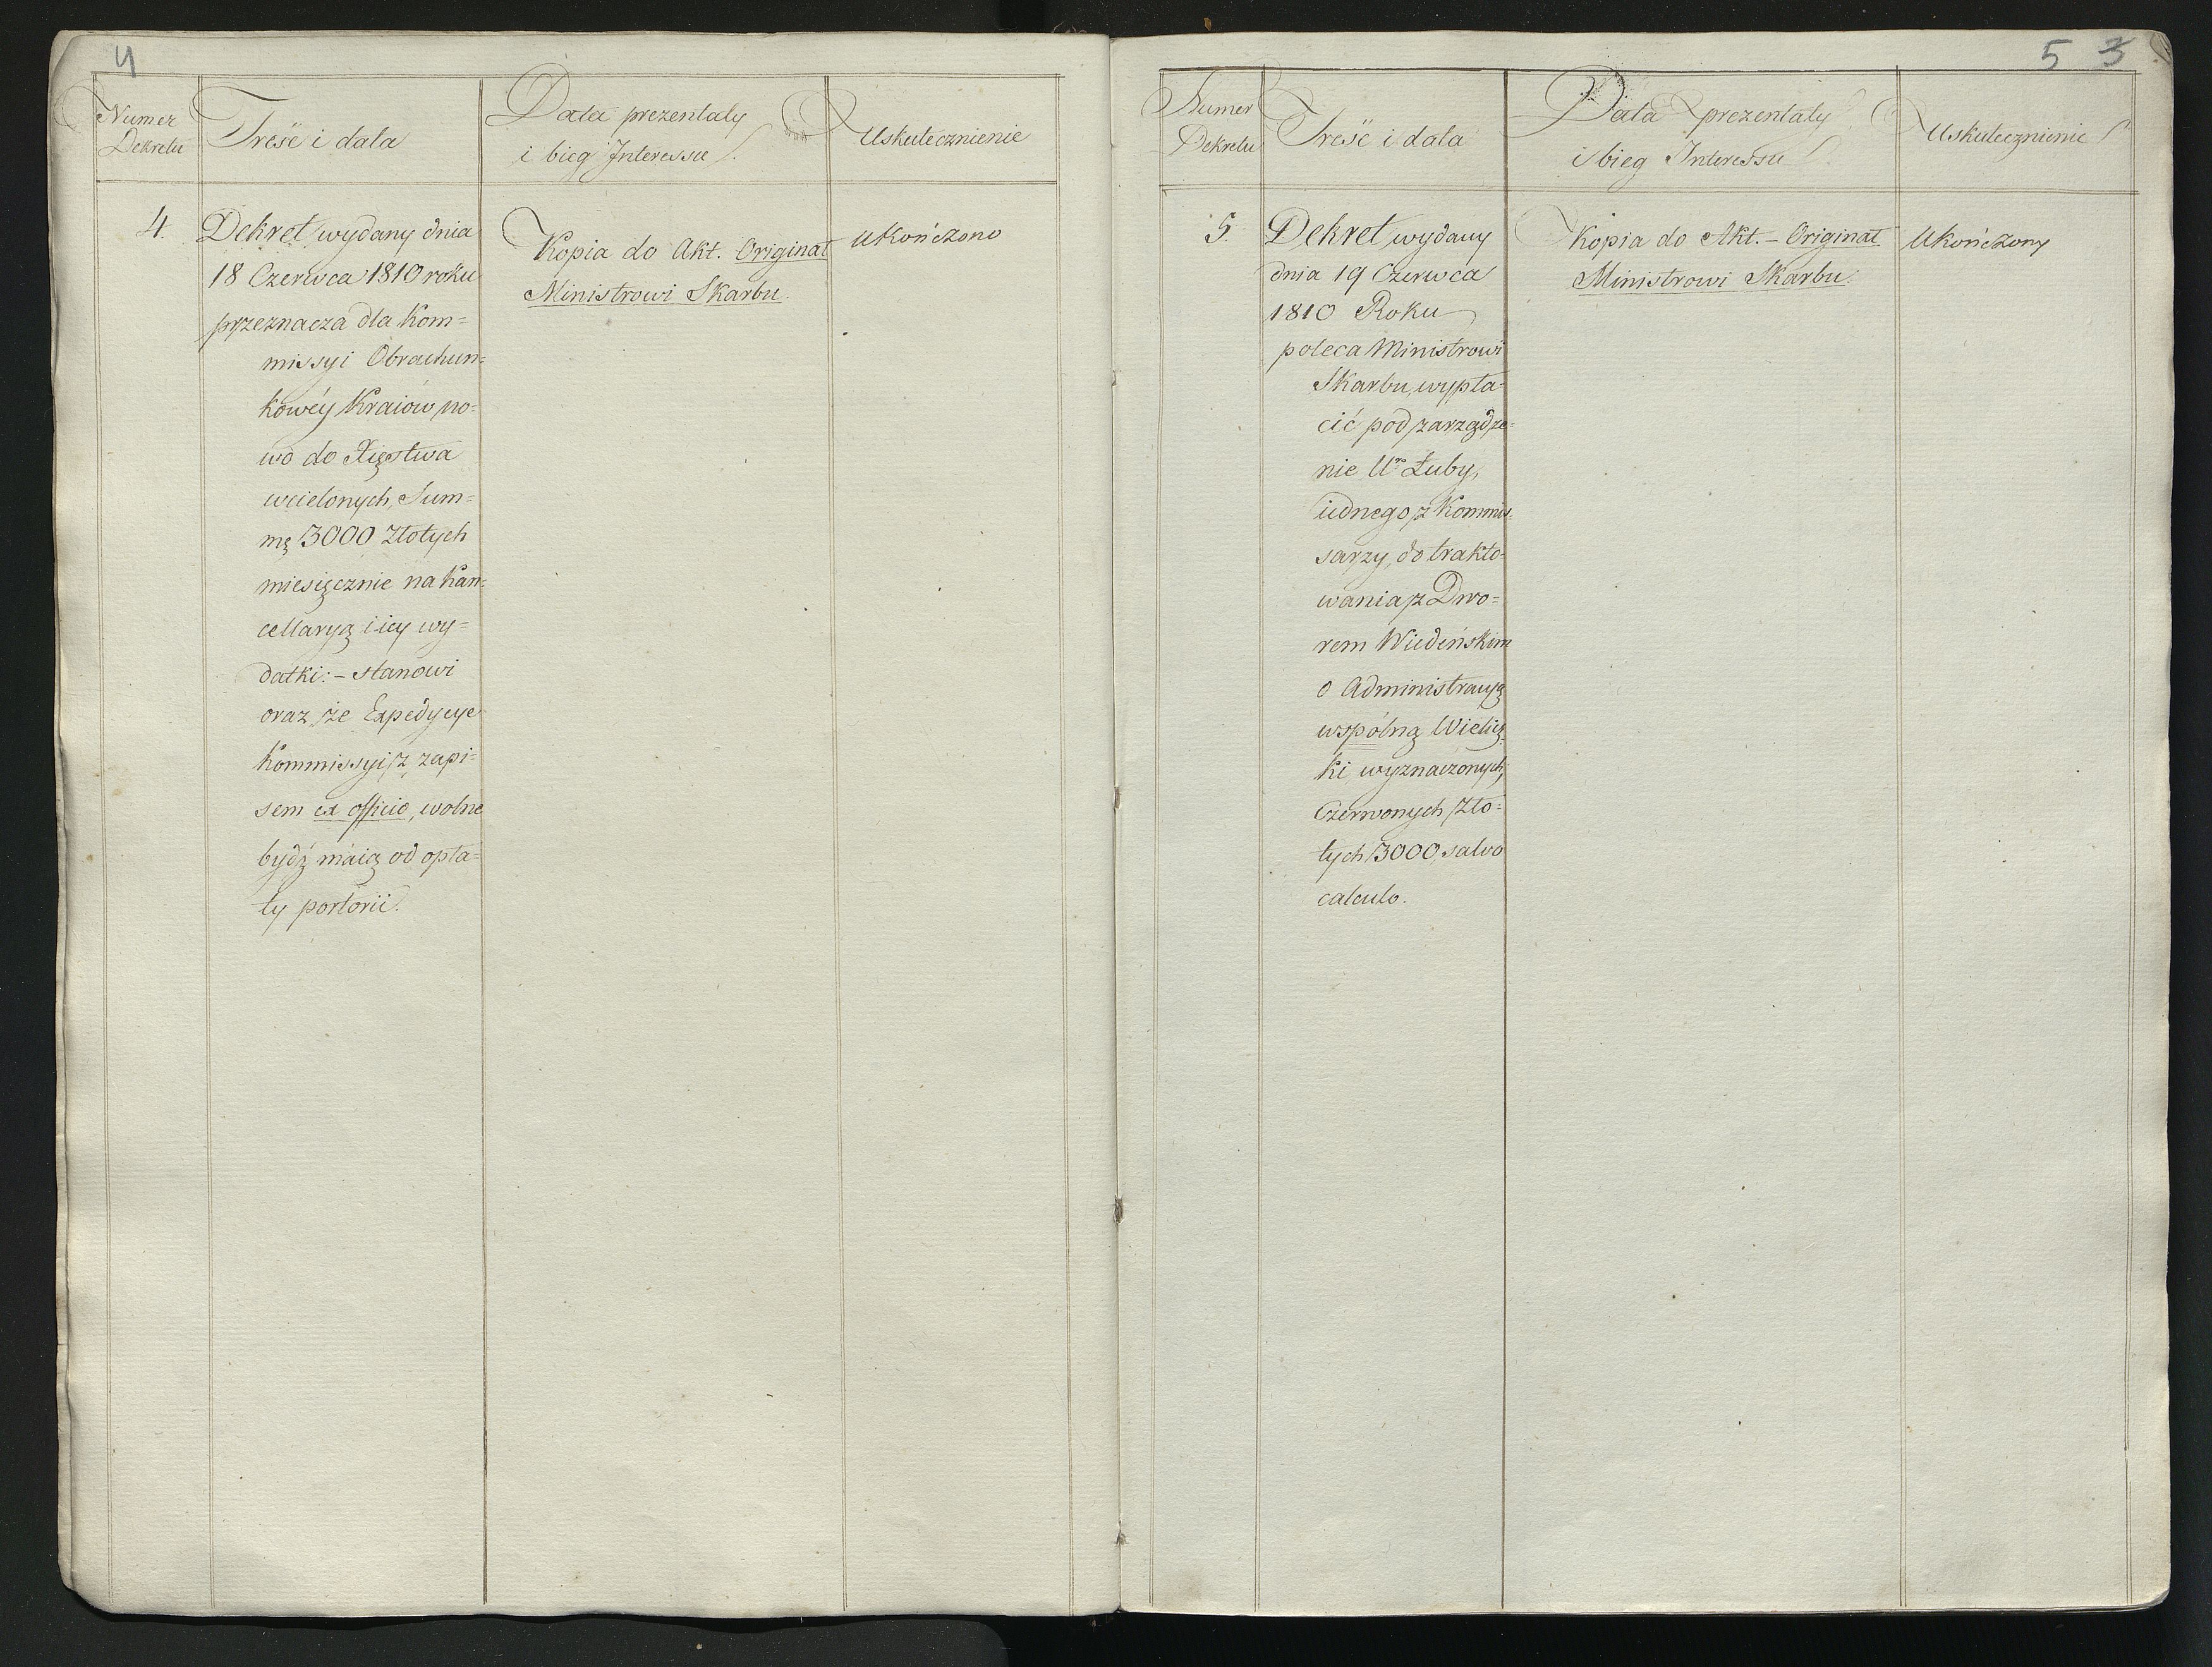 4
Numer
Dekretu
Treść i data
Data prezentaty
i bieg Interessu
Uskutecznienie
4.
Dekret wydany dnia
18 Czerwca 1810 roku
przeznacza dla Kom=
missyi Obrachun=
kowéy Kraiów no=
wo do Xięstwa
wcielonych, Sum=
mę 3000 Złotych
miesięcznie na Kan=
cellaryą i iey wy=
datki: – stanowi
oraz, że Expedycye
Kommissyi, z zapi=
sem ex officio, wolne
bydź maią od opła=
ty portorii.
Kopia do Akt. Originał
Ministrowi Skarbu.
Ukończono
5 3
Numer
Dekretu
Treść i data
Data prezentaty
i bieg Interessu
Uskutecznienie
5.
Dekret wydany
dnia 19 Czerwca
1810 Roku
poleca Ministrowi
Skarbu, wypła=
cić pod zarządze=
nie Ur. Łuby,
iednego z Kommis=
sarzy, do trakto=
wania z Dwo=
rem Wiedeńskim
o Administracyą
wspólną Wielicz=
ki wyznaczonych,
Czerwonych Zło=
tych 3000, salvo
calculo.
Kopia do Akt. – Originał
Ministrowi Skarbu.
Ukończony